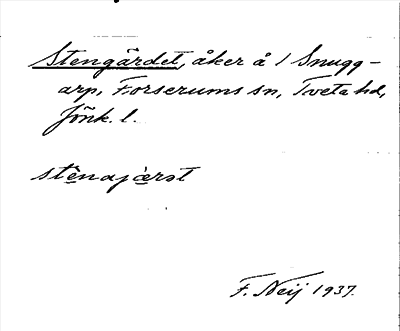 Stengärdet, åker å / Snugg-
arp, Forserums sn, Tveta hd,
Jönk. l.
stènajærst
F. Neij 1937.